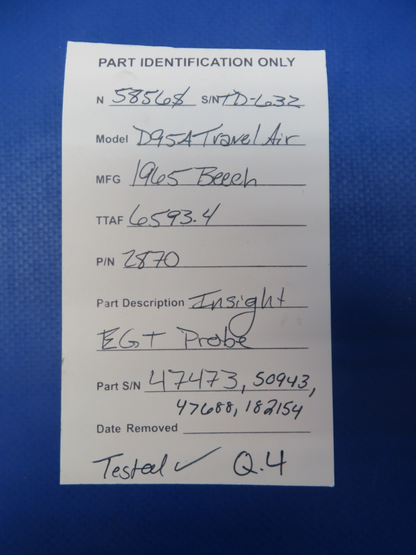 PART IDENTIFICATION ONLY
N 5856S S/N TD-632
Model D95A Travel Air
MFG 1965 Beech
TTAF 6593.4
P/N 2870
Part Description Insight
EGT Probe
Part S/N 47473, 50943,
47688, 182154
Date Removed
Tested ✓ Q.4